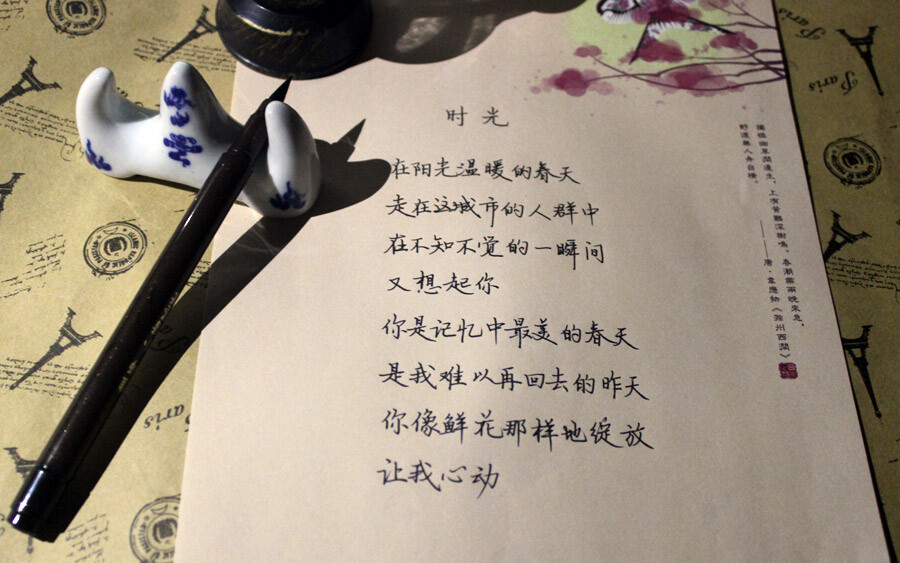 时光
在阳光温暖的春天
走在这城市的人群中
在不知不觉的一瞬间
又想起你
你是记忆中最美的春天
是我难以再回去的昨天
你像鲜花那样地绽放
让我心动
獨憐幽草澗邊生，上有黄鸝深樹鳴。春潮帶雨晚來急，
野渡無人舟自横。
——唐·韋應物《滁州西澗》
Paris
Paris
Paris
Paris